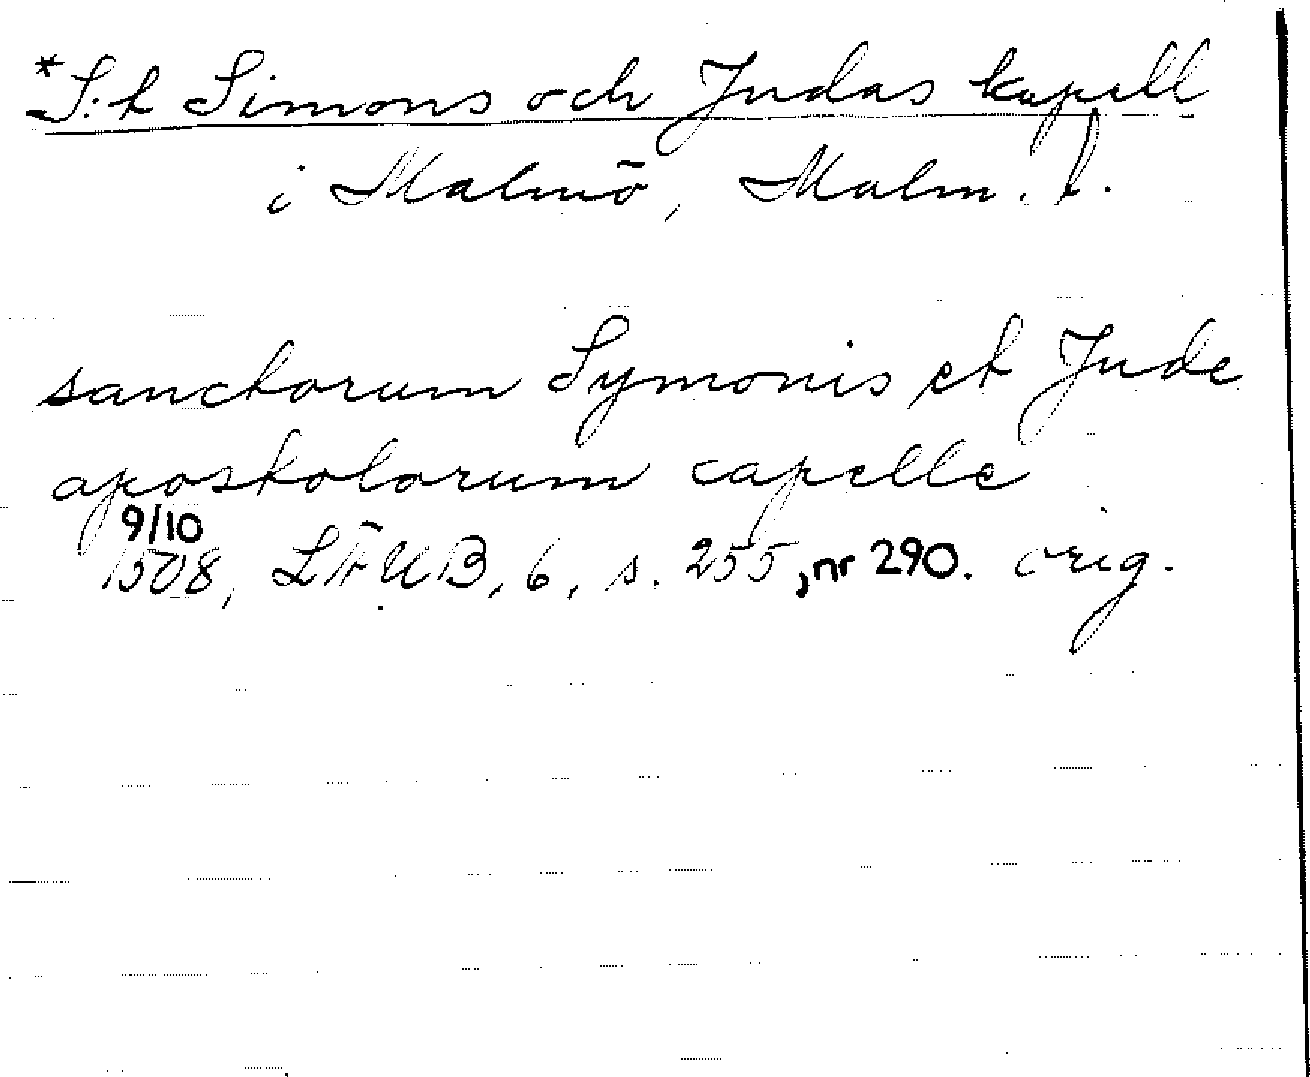 *S:t Simons och Judas kapell
i Malmö, Malm. l.
sanctorum Symonis et Jude
apostolorum capelle
9/10
1508, LÄUB, 6, s. 255, nr 290. orig.